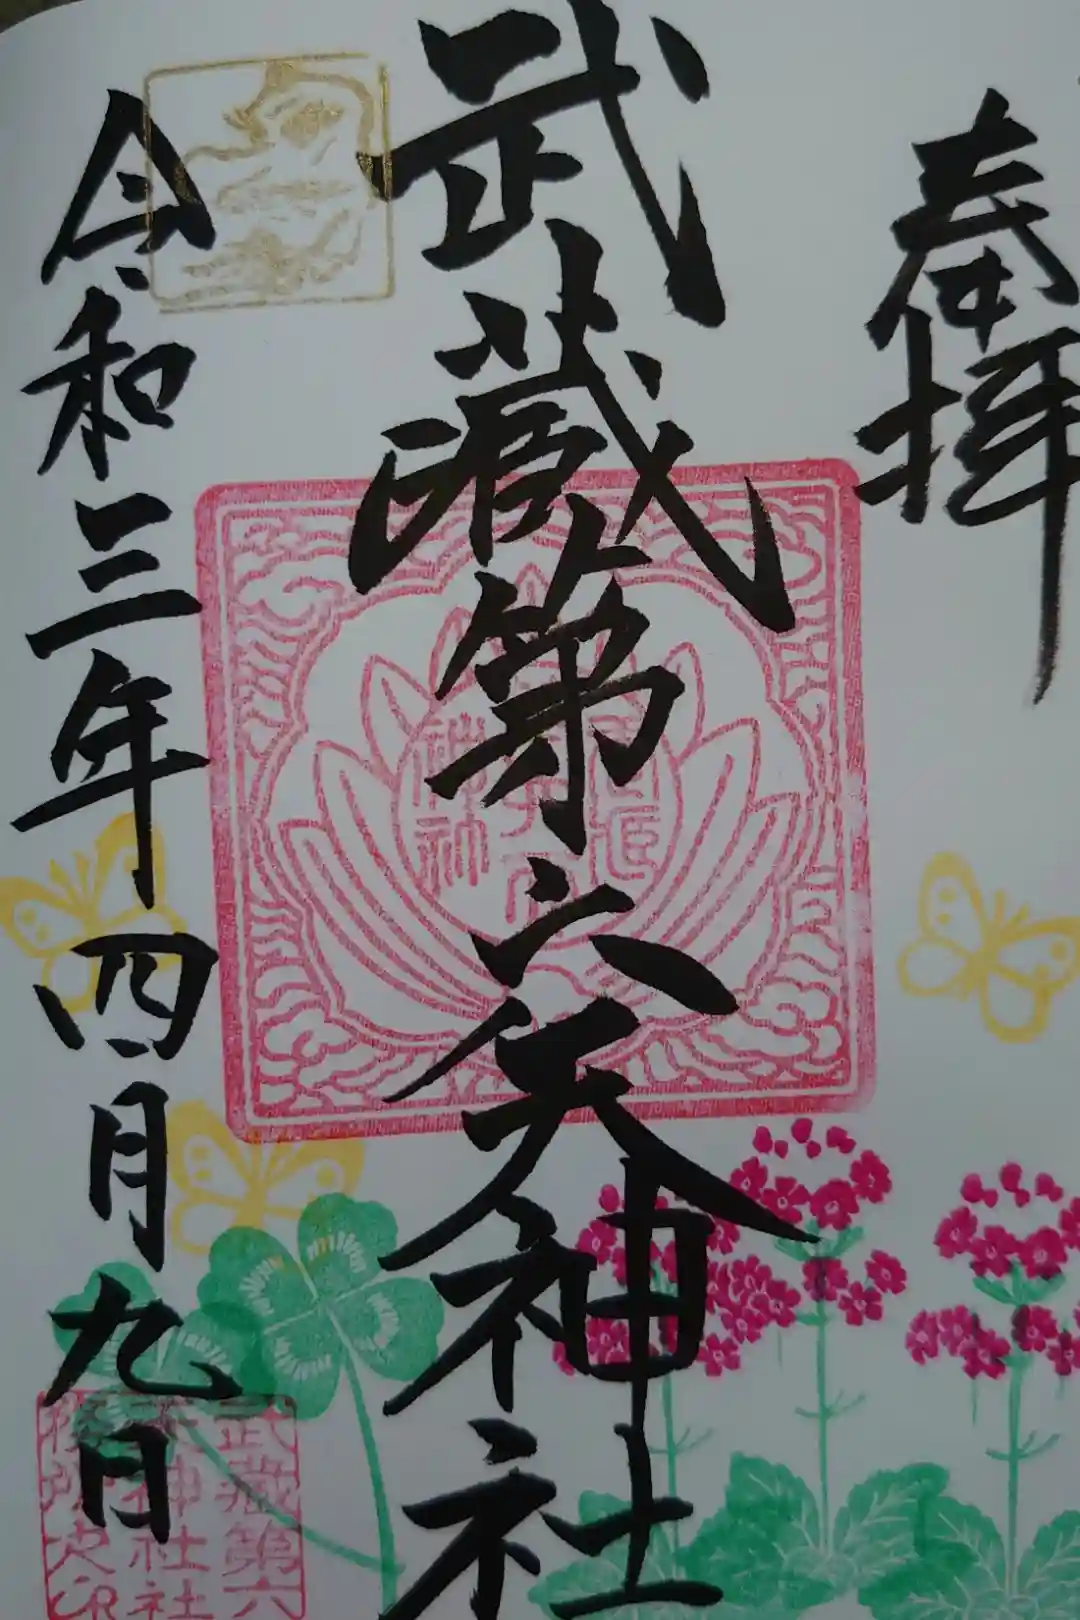 奉拝
武蔵第六天神社
令和三年四月九日
武蔵第六
天神社社
務所之印